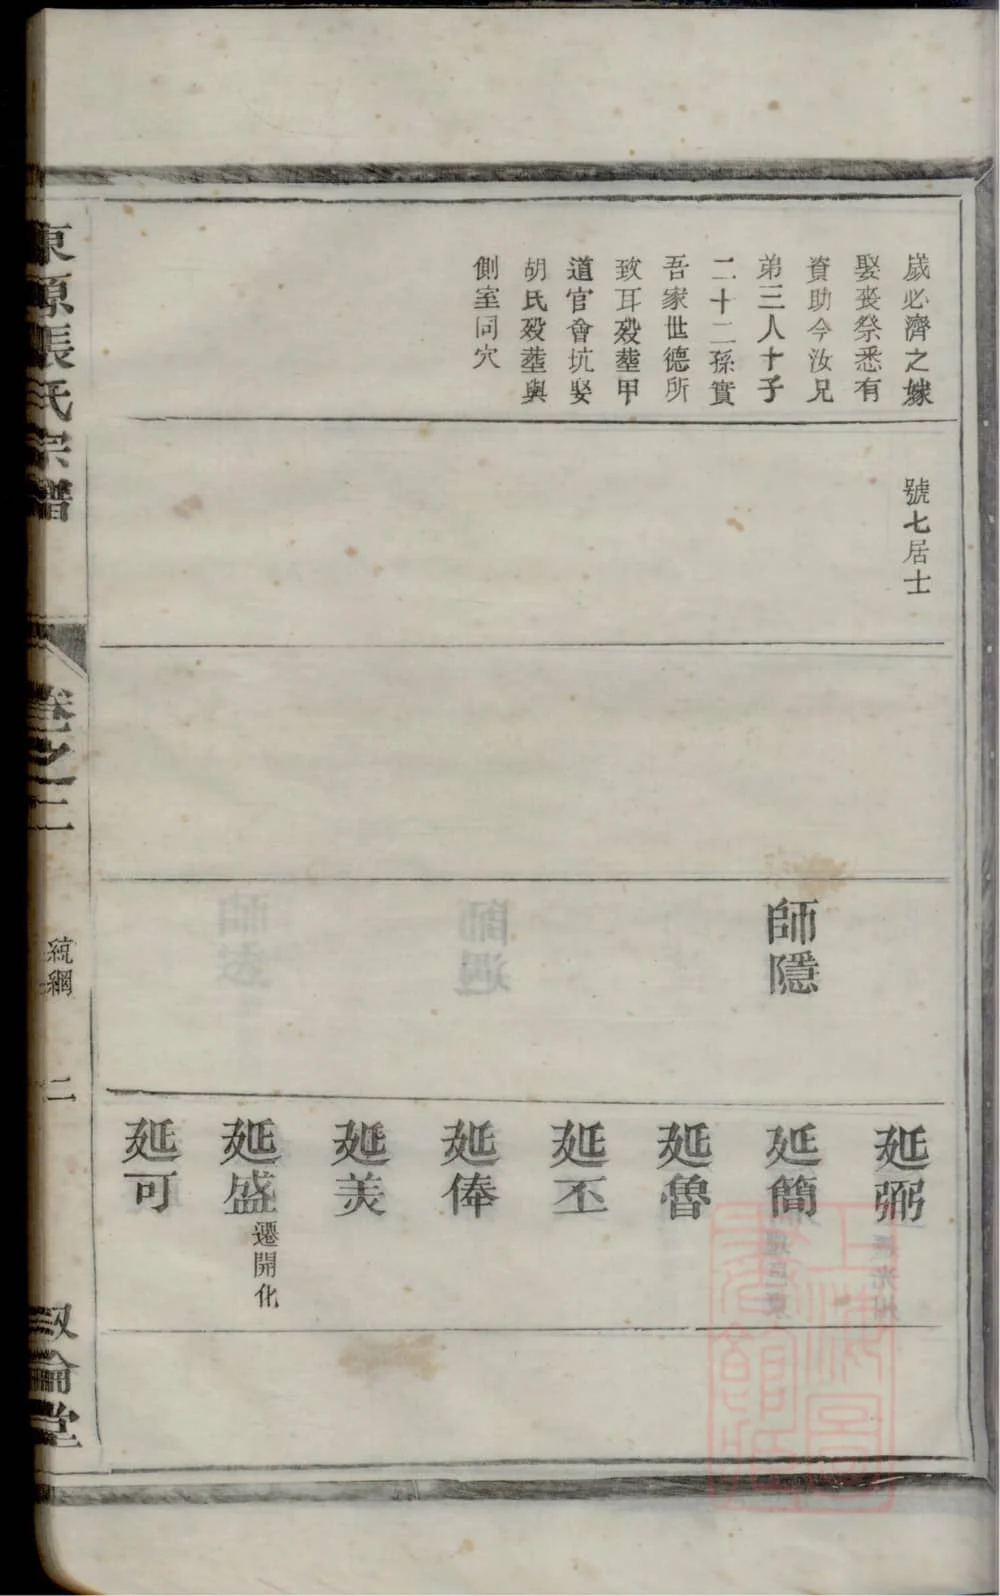 歲必濟之嫁
娶喪祭悉有
資助今汝兄
弟三人十子
二十二孫實
吾家世德所
致耳殁塟甲
道官會坑娶
胡氏殁塟與
側室同穴
號七居士
師隱
延弼
延簡
延魯
延丕
延俸
延美
延盛
遷開化
延可
東源張氏宗譜
卷之二
統綱
二
敘倫堂
上海圖書館藏